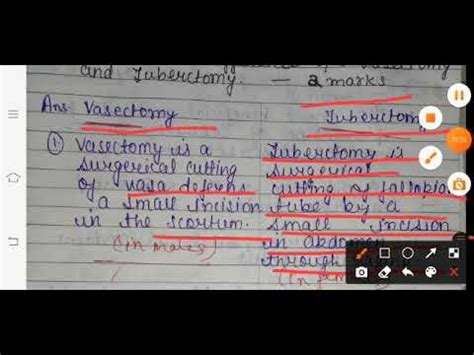 of a Vasectomy
and Tuberctomy. — 2 marks
Ans. Vasectomy
Tuberctom
① Vasectomy is a
surgerical cutting
of vasa deferens
a small incision
in the scortum.
(in males)
Tuberctomy is
surgerical
cutting of fallopia
tube by a
small incision
in abdomen
through